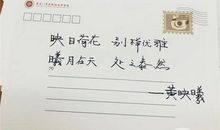 映日荷花 别样优雅
曦月在天 处之泰然
——黄映曦